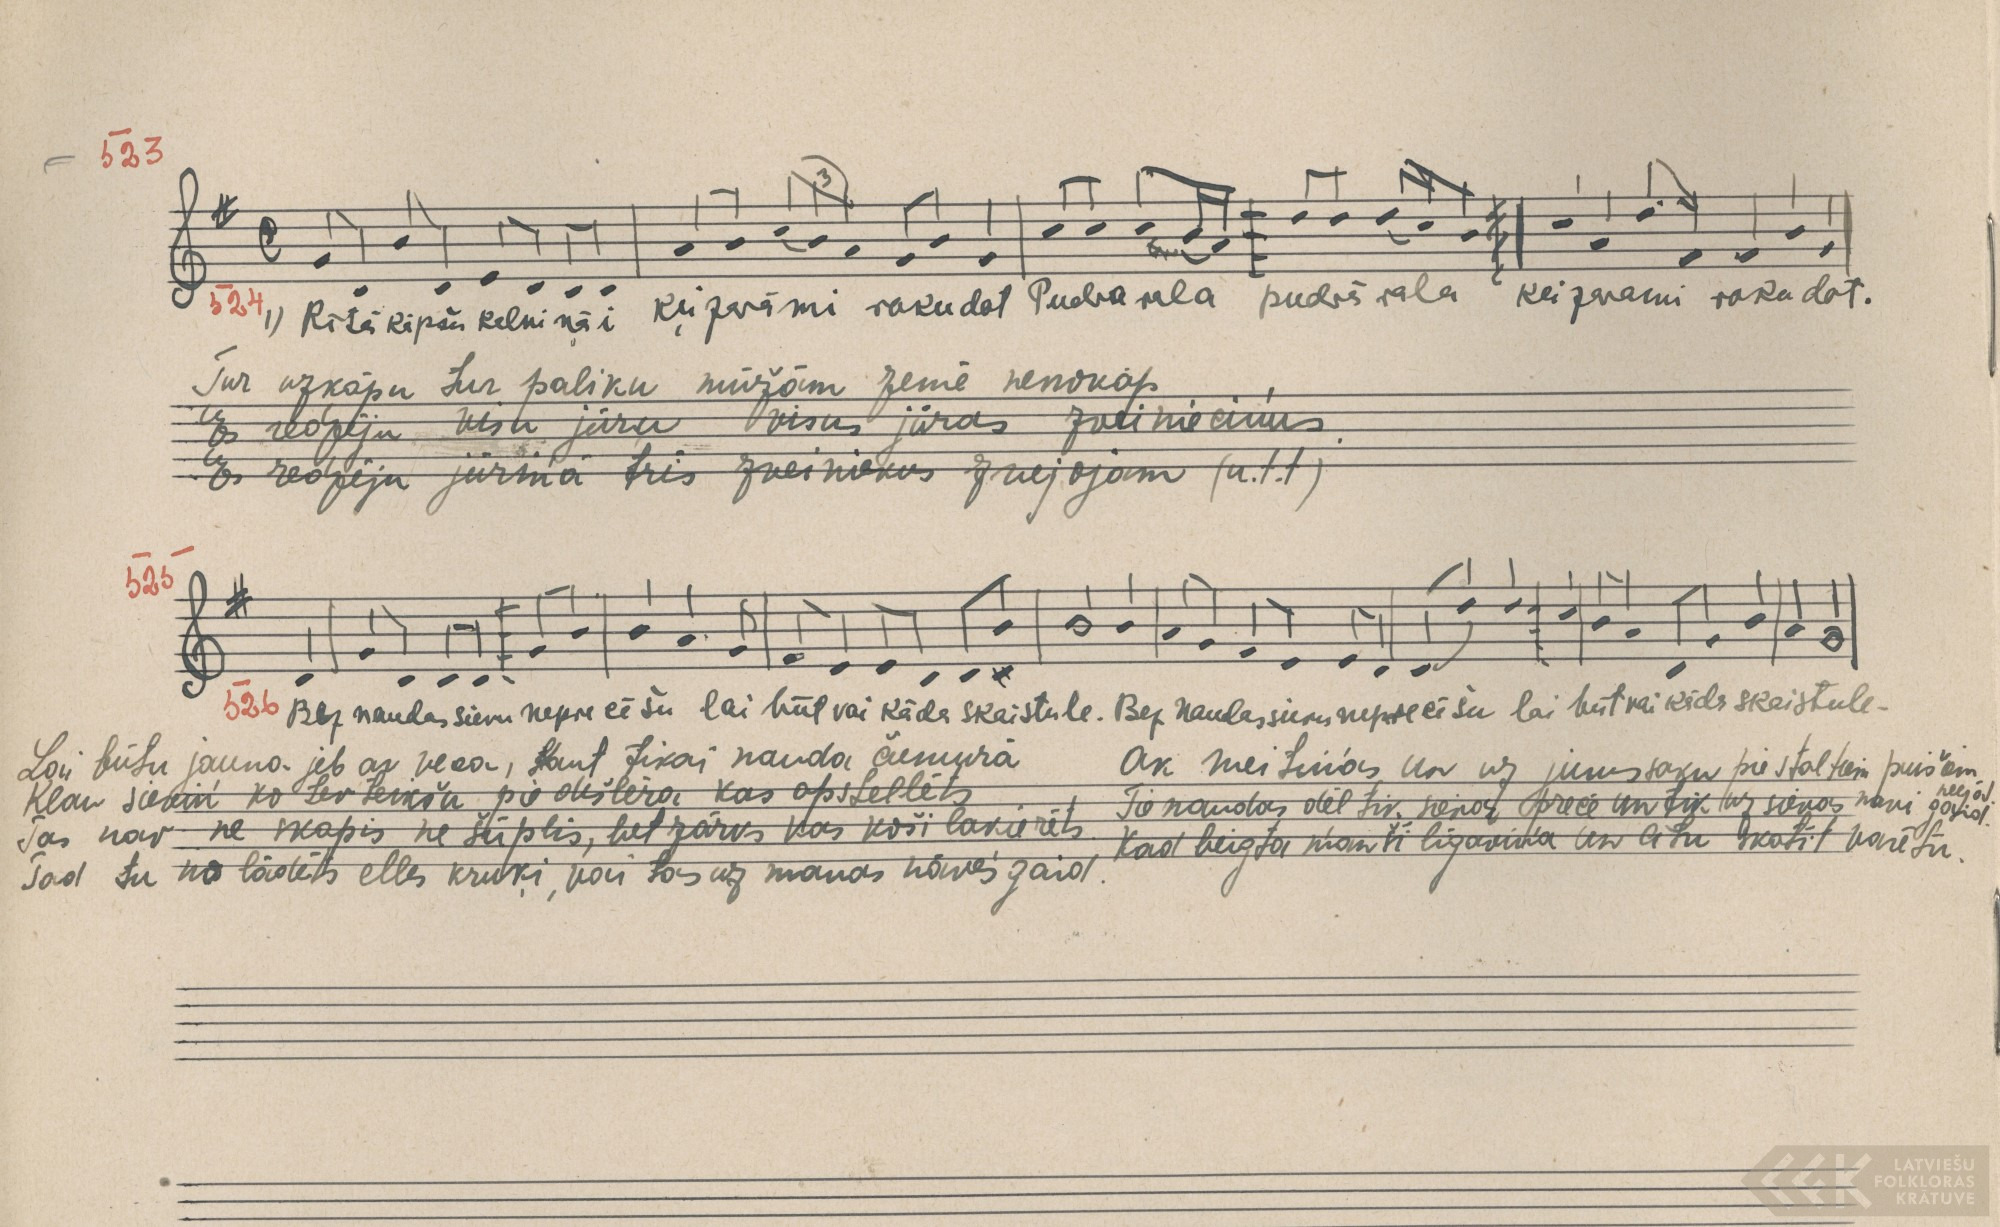 523
3
524 1) Rītā kāpšu kalniņāi ķeizarāmi roku dot Pudra rala pudrā rala keizarami roku dot.
Tur uzkāpu tur paliku mūžām zemē nenokāp
Es redzēju visu jūru visus jūras zveinieciņus.
Es redzēju jūriņā trīs zveiniekus zvejojam (u.t.t)
525
526 Bez naudas sievu neprecēšu lai būt vai kāda skaistule. Bez naudas sievu neprecēšu lai būt vai kāda skaistule.
Lai būtu jauna jeb ar veca, kaut tikai nauda čemurā
Klau sieviņ ko tev teikšu pie dišlera kas apstellēts
Tas nav ne skapis ne šūplis, bet zārks kas koši lakierēts.
Tad tu no lādēts elles kruķi, vai tas uz manas nāves gaid.
Ak meitiņas un uz jums saku pie staltiem puišiem neejat
Tie naudas dēļ tik sievas precē un tik uz sievas nāvi gaid.
Kad beigta man šī līgaviņa un citu skatīt varētu.
LATVIEŠU
FOLKLORAS
KRĀTUVE